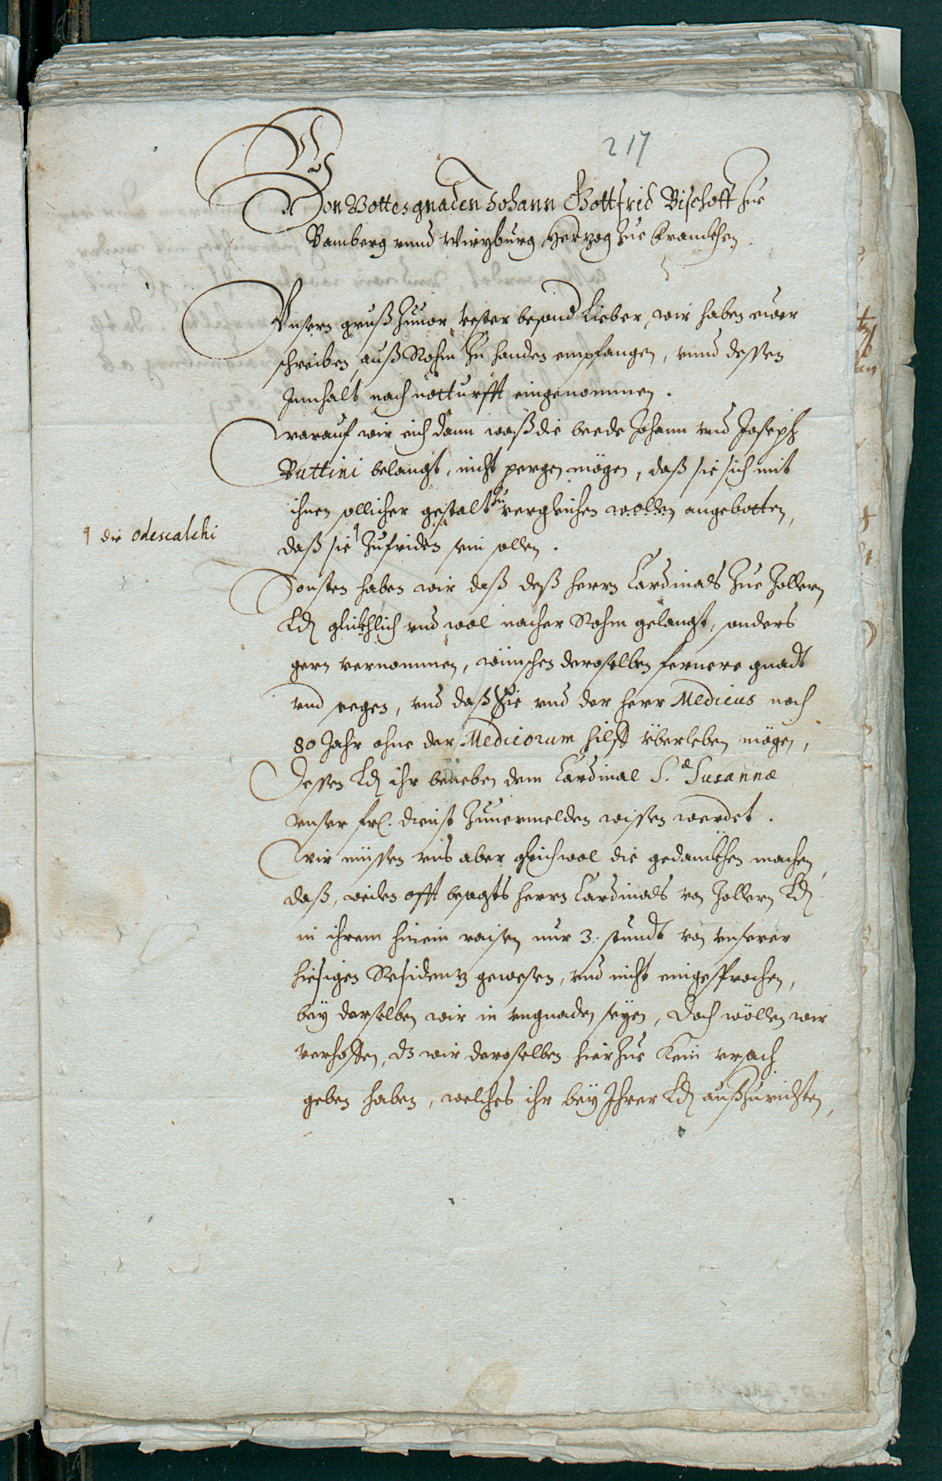 217
Von Gottes gnaden Johann Gottfrid Bischoff zue
Bamberg vnnd Wirtzburg Hertzog zue Franckhen.
Vnsern gruß zuuor, vester besond Lieber, wir haben euwer
schreiben auß Rohm zu handen empfangen, vnnd dessen
Innhalt nach notturfft eingenommen.
Warauf wir eich dann, waß die beede Johann vnd Joseph
Buttini belangt, nicht pergen mögen, daß sie sich mit
ihnen sollicher gestalt zu vergleichen wollen angebotten,
daß sie ꟼ zufriden sein sollen.
ꟼ die Odescalchi
Sonsten haben wir daß deß herrn Cardinals zue Zollern
Ld glückhlich vnd wol nacher Rohm gelangt, sonders
gern vernommen, wünschen deroselben fernere gnadt
vnd segen, vnd daß Sie vnd der herr Medicus noch
80 Jahr ohne der Medicorum hilff überleben mögen,
Dessen Ld ihr beneben dem Cardinal S.æ Susannæ
vnser frl. dienst zuuermelden wissen werdet.
Wir müssen vns aber gleichwol die gedanckhen machen,
daß, weilen offt besagts herrn Cardinals von Zollern Ld
in ihrem hinein raisen nur 3. stundt von vnserer
hiesigen Residentz gewesen, vnd nicht eingesprochen,
bey derselben wir in vngnaden seyen, Doch wöllen wir
verhoffen, dz wir deroselben hierzue kein vrsach
geben haben, welches ihr bey Ihrer Ld außzurichten,